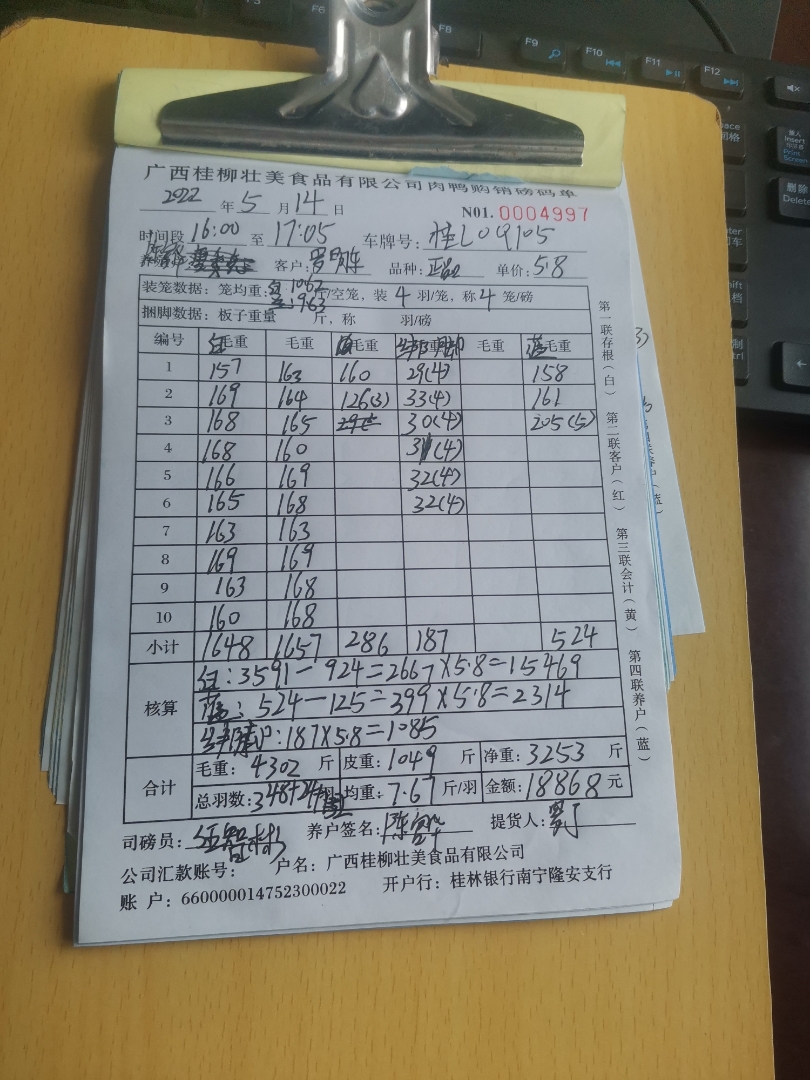 广西桂柳壮美食品有限公司肉鸭购销磅码单
2022 年 5 月 14 日 N01. 0004997
时间段 16:00 至 17:05 车牌号: 桂L09105
客户: 品种: 正品 单价: 5.8
装笼数据: 笼均重: 红:10.62 斤/空笼, 装 4 羽/笼, 称 4 笼/磅
蓝:9.63
捆脚数据: 板子重量 斤, 称 羽/磅
编号 红毛重 毛重 毛重 毛重 毛重 蓝毛重
1 157 163 160 29(4) 158
2 169 164 126(3) 33(4) 161
3 168 165 30(4) 205(5)
4 168 160 31(4)
5 166 169 32(4)
6 165 168 32(4)
7 163 163
8 169 169
9 163 168
10 160 168
小计 1648 1657 286 187 524
核算
红: 3591-924=2667×5.8=15469
蓝: 524-125=399×5.8=2314
绑脚: 187×5.8=1085
合计
毛重: 4302 斤 皮重: 1049 斤 净重: 3253 斤
总羽数: 348+24 羽 均重: 7.67 斤/羽 金额: 18868 元
司磅员: 养户签名: 提货人:
公司汇款账号: 户名: 广西桂柳壮美食品有限公司
账 户: 660000014752300022 开户行: 桂林银行南宁隆安支行
第一联存根(白) 第二联客户(红) 第三联会计(黄) 第四联养户(蓝)
F6
F8
F9
F10
F11
F12
插入
Insert
Print
Screen
删除
Delete